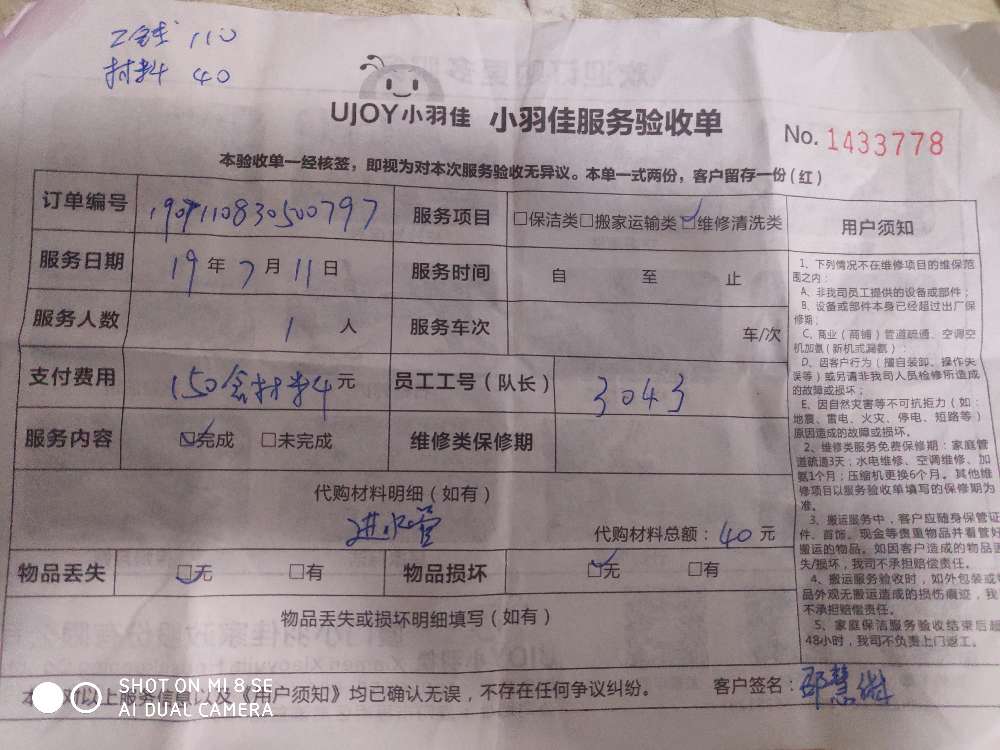 工钱 110
材料 40
UJOY小羽佳 小羽佳服务验收单
No. 1433778
本验收单一经核签，即视为对本次服务验收无异议。本单一式两份，客户留存一份（红）
订单编号 190711083050079​7 服务项目 □保洁类□搬家运输类☑维修清洗类
服务日期 19年7月11日 服务时间 自 至 止
服务人数 1 人 服务车次 车/次
支付费用 150含材料元 员工工号（队长） 3043
服务内容 ☑完成 □未完成 维修类保修期
代购材料明细（如有）
进水管 代购材料总额：40元
物品丢失 ☑无 □有 物品损坏 ☑无 □有
物品丢失或损坏明细填写（如有）
对以上服务信息以及《用户须知》均已确认无误，不存在任何争议纠纷。 客户签名：邵慧
用户须知
1、下列情况不在维修项目的维保范
围之内：
A、非我司员工提供的设备或部件；
B、设备或部件本身已经超过出厂保
修期；
C、商业（商铺）管道疏通、空调空
机加氨（新机或漏氨）；
D、因客户行为（擅自装卸、操作失
误等）或另请非我司人员检修所造成
的故障或损坏；
E、因自然灾害等不可抗拒力（如：
地震、雷电、火灾、停电、短路等）
原因造成的故障或损坏。
2、维修类服务免费保修期：家庭管
道疏通3天；水电维修、空调维修、加
氨1个月；压缩机更换6个月。其他维
修项目以服务验收单填写的保修期为
准。
3、搬运服务中，客户应随身保管证
件、首饰、现金等贵重物品并看管好
搬运的物品。如因客户造成的物品丢
失/损坏，我司不承担赔偿责任。
4、搬运服务验收时，如外包装或物
品外观无搬运造成的损伤痕迹，我
不承担赔偿责任。
5、家庭保洁服务验收结束后超
48小时，我司不负责上门返工。
SHOT ON MI 8 SE
AI DUAL CAMERA